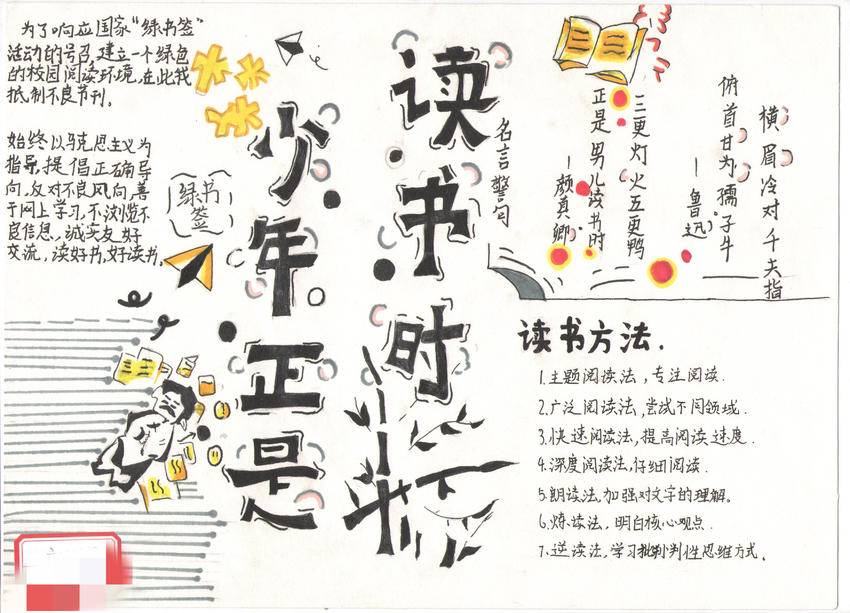 为了响应国家“绿书签”
活动的号召,建立一个绿色
的校园阅读环境,在此我
抵制不良节刊。
始终以马克思主义为
指导,提倡正确导
向,反对不良风向,善
于网上学习,不浏览不
良信息,诚实友好
交流,读好书,好读书。
绿书
签
少年正是
读书时
名言警句
三更灯火五更鸭
正是男儿读书时
—颜真卿
横眉冷对千夫指
俯首甘为孺子牛
—鲁迅
读书方法.
1.主题阅读法,专注阅读.
2.广泛阅读法,尝试不同领域.
3.快速阅读法,提高阅读速度.
4.深度阅读法,仔细阅读.
5.朗读法,加强对文字的理解。
6.炼读法,明白核心观点.
7.逆读法,学习批判性思维方式.